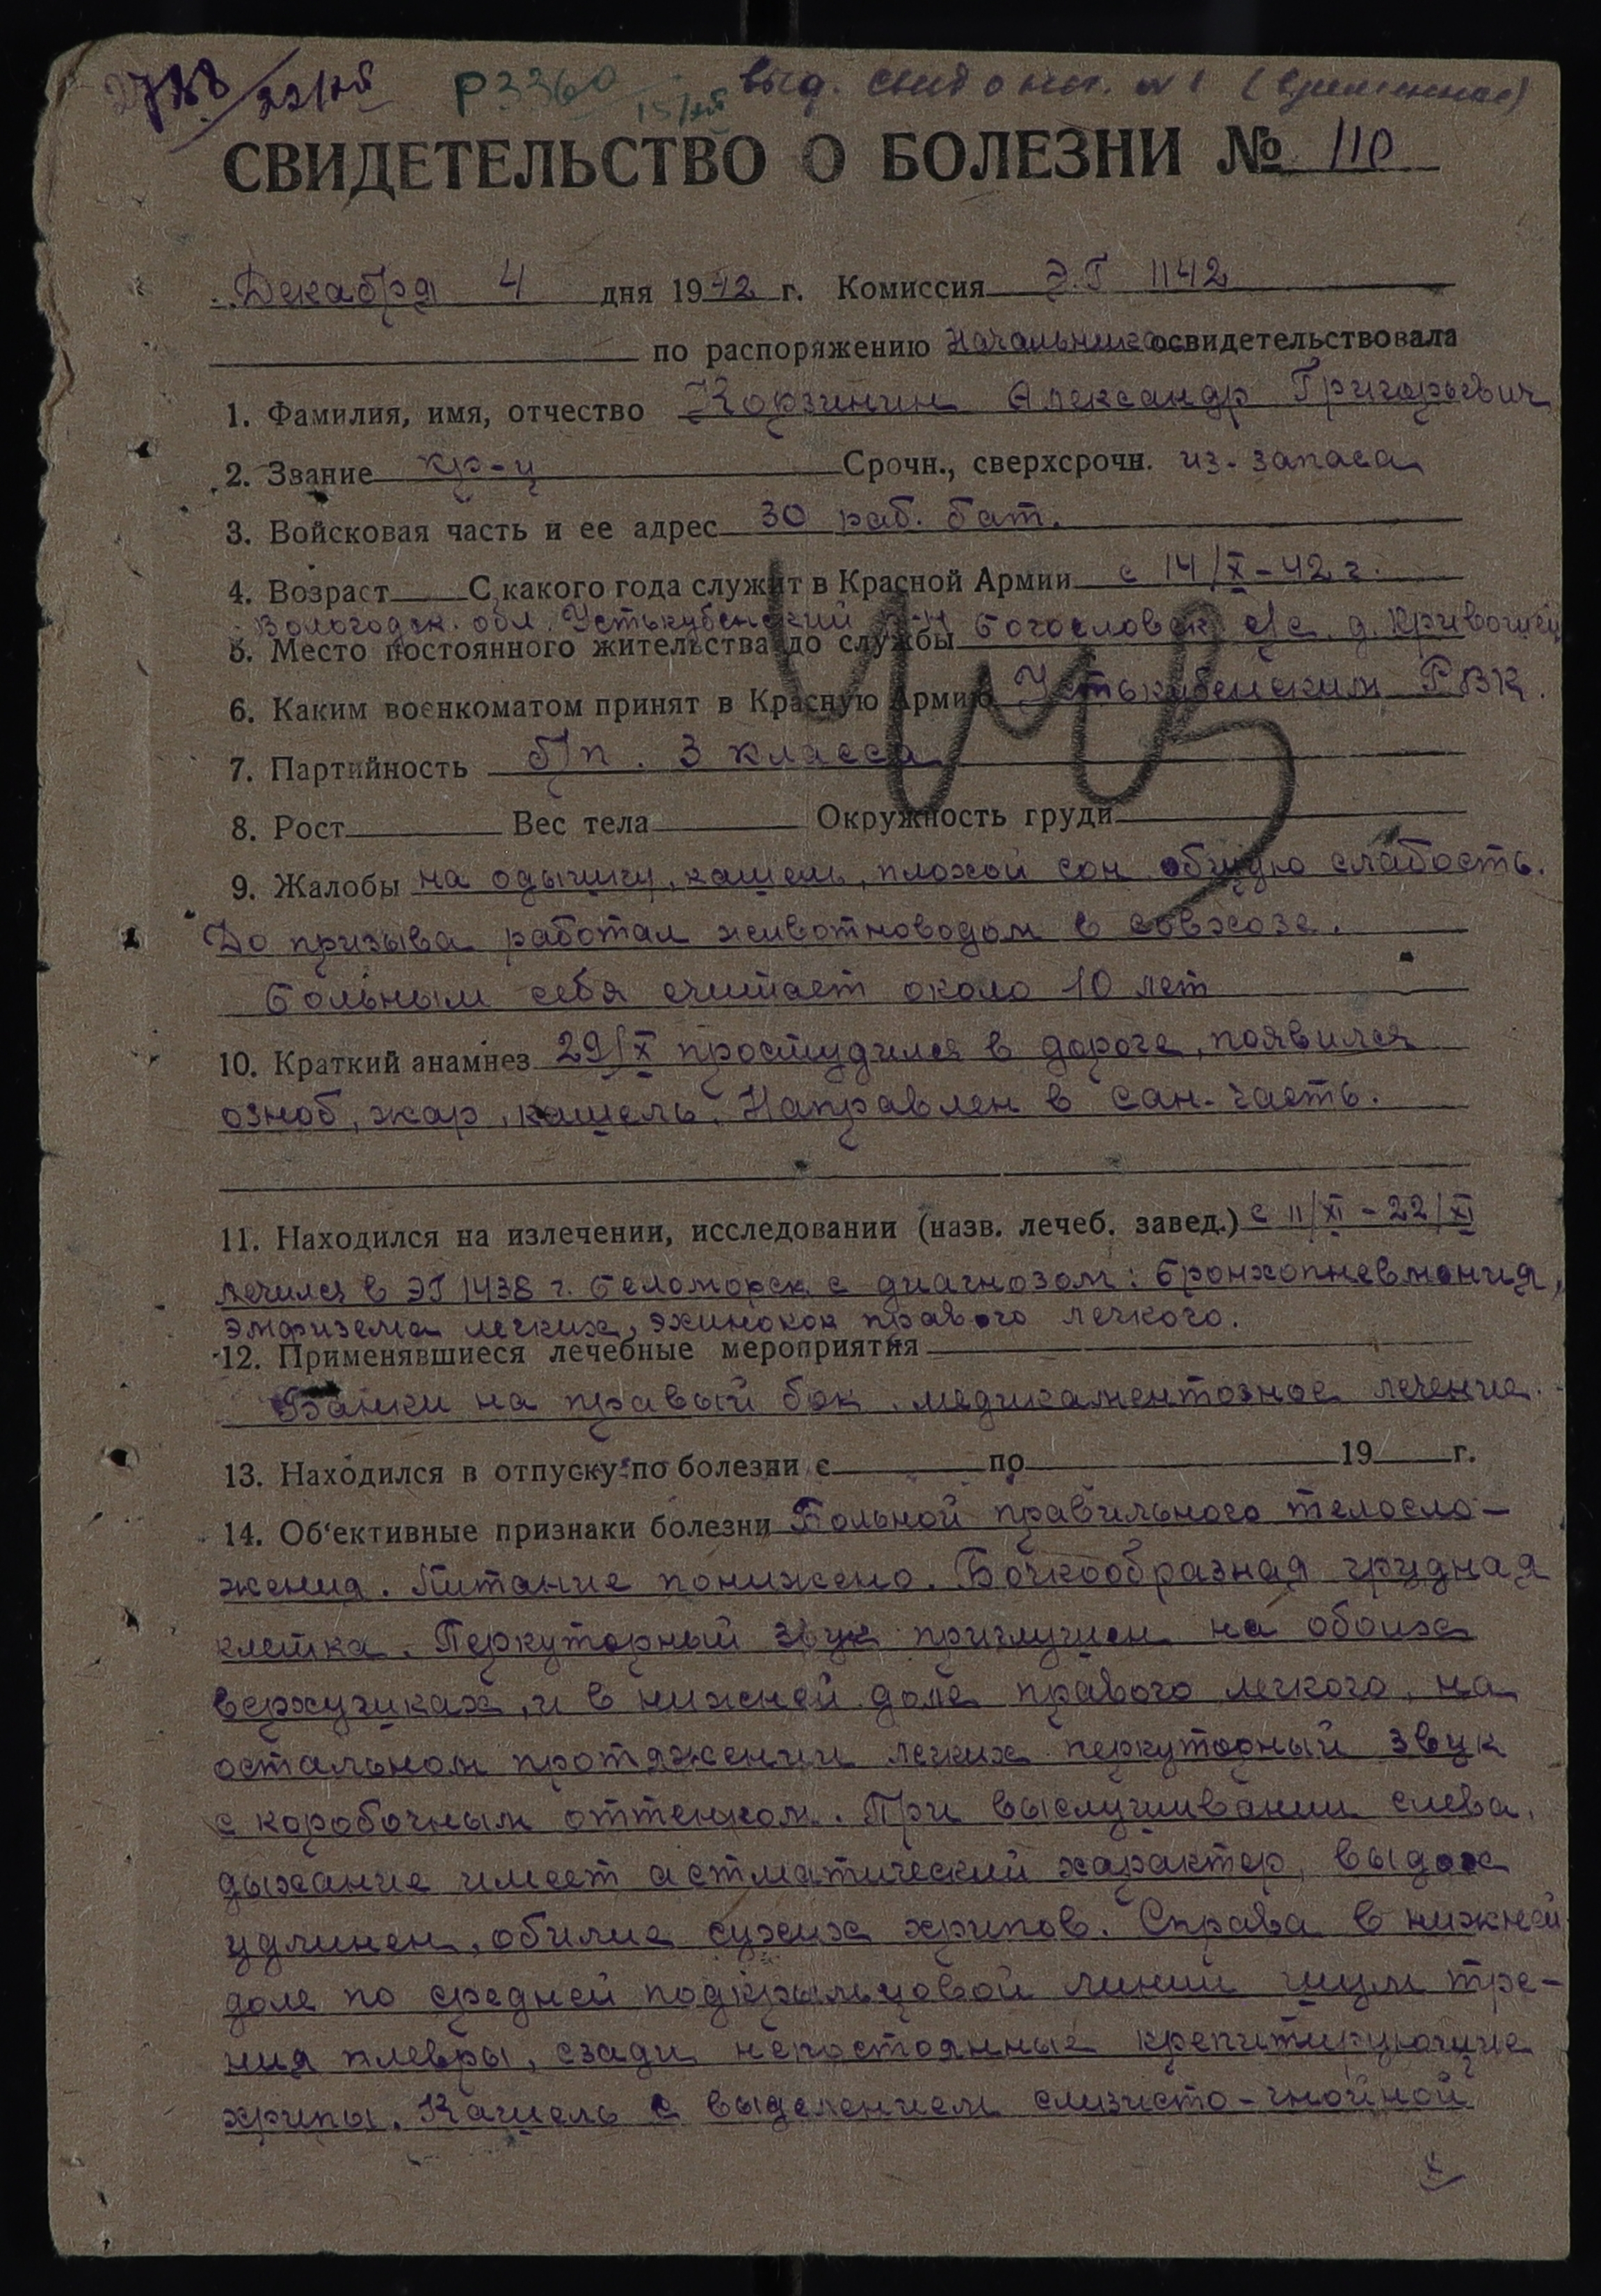 22/XII Р3360 15/XII выд. свид о бол. №1 (временное)
СВИДЕТЕЛЬСТВО О БОЛЕЗНИ № 110
Декабря 4 дня 1942 г. Комиссия Э.Г 1142
по распоряжению Начальника освидетельствовала
1. Фамилия, имя, отчество Корзинин Александр Григорьевич
2. Звание кр-ц Срочн., сверхсрочн. из запаса
3. Войсковая часть и ее адрес 30 раб. бат.
4. Возраст С какого года служит в Красной Армии с 14/X-42 г.
Вологодск. обл. Устькубенский р-н Богословск с/с. д.
5. Место постоянного жительства до службы
6. Каким военкоматом принят в Красную Армию Устькубенским РВК.
7. Партийность б/п. 3 класса
8. Рост Вес тела Окружность груди
9. Жалобы на одышку, кашель, плохой сон общую слабость.
До призыва работал животноводом в совхозе.
Больным себя считает около 10 лет
10. Краткий анамнез 29/X простудился в дороге, появился
озноб, жар, кашель. Направлен в сан-часть.
11. Находился на излечении, исследовании (назв. лечеб. завед.) с 11/XI-22/XI
лечился в ЭГ 1438 г. Беломорск с диагнозом: бронхопневмония,
эмфизема легких, эхинокок правого легкого.
12. Применявшиеся лечебные мероприятия
Банки на правый бок, медикаментозное лечение.
13. Находился в отпуску по болезни с по 19 г.
14. Об'ективные признаки болезни Больной правильного телосло-
жения. Питание понижено. Бочкообразная грудная
клетка. Перкуторный звук приглушен на обоих
верхушках, и в нижней доле правого легкого, на
остальном протяжении легких перкуторный звук
с коробочным оттенком. При выслушивании слева,
дыхание имеет астматический характер, выдох
удлинен, обилие сухих хрипов. Справа в нижней
доле по средней подкрыльцовой линии шум тре-
ния плевры, сзади непостоянные крепитирующие
хрипы. Кашель с выделением слизисто-гнойной